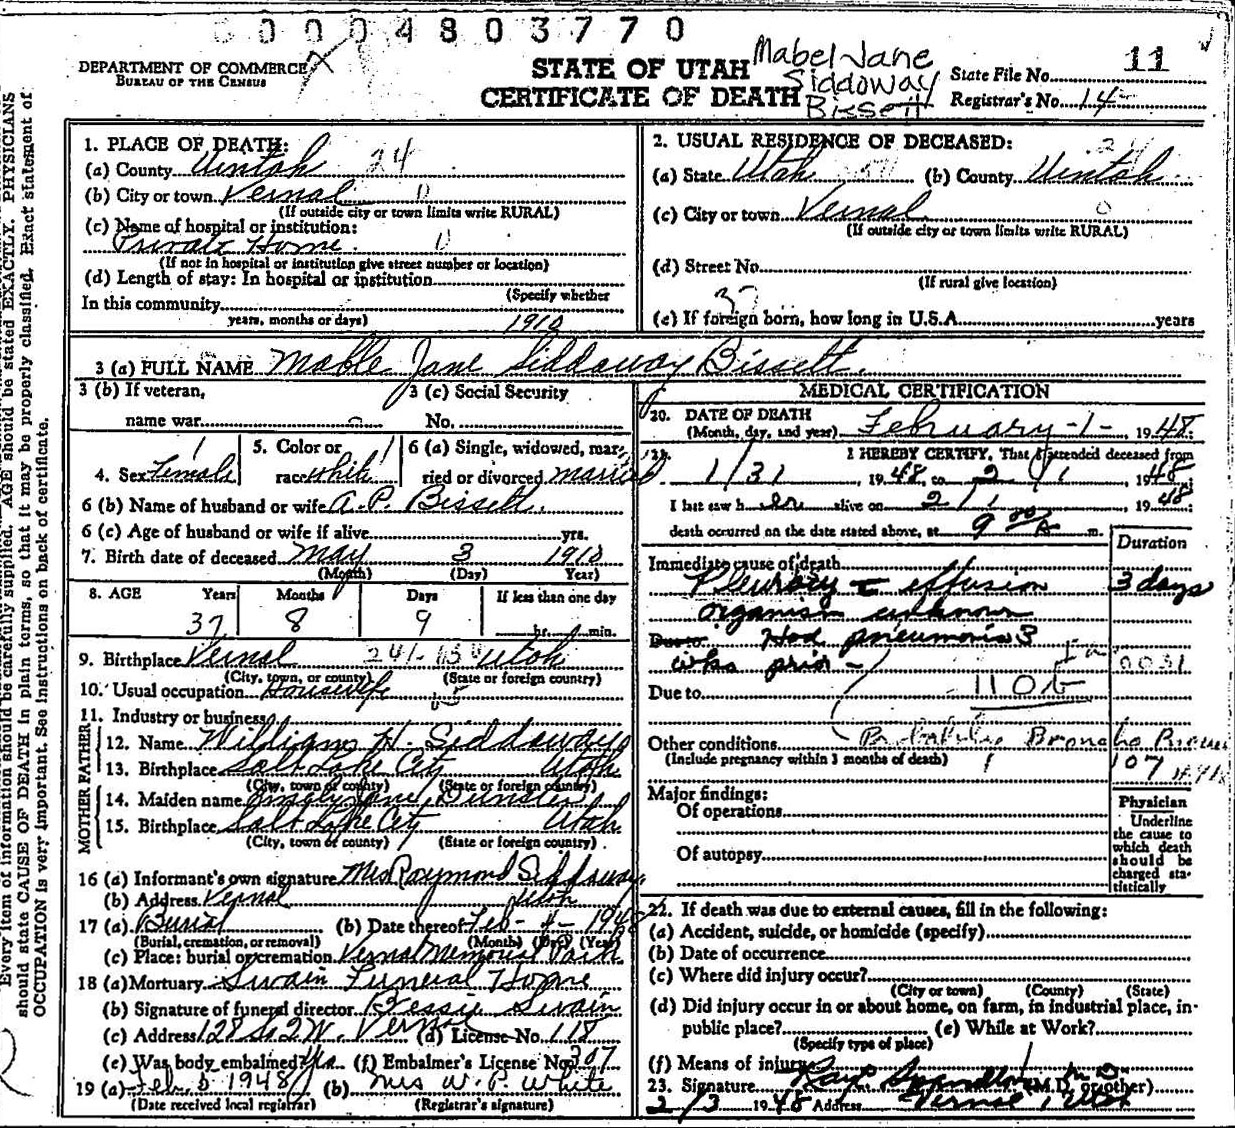 0 0 0 4 8 0 3 7 7 0
DEPARTMENT OF COMMERCE
BUREAU OF THE CENSUS
STATE OF UTAH
CERTIFICATE OF DEATH
Mabel Jane
Siddoway
Bissett
11
State File No.
Registrar's No. 14
Every item of information should be carefully supplied. AGE should be stated EXACTLY. PHYSICIANS
should state CAUSE OF DEATH in plain terms, so that it may be properly classified. Exact statement of
OCCUPATION is very important. See instructions on back of certificate.
1. PLACE OF DEATH:
(a) County Uintah 24
(b) City or town Vernal 0
(If outside city or town limits write RURAL)
(c) Name of hospital or institution:
Private Home 0
(If not in hospital or institution give street number or location)
(d) Length of stay: In hospital or institution
(Specify whether
In this community
years, months or days) 1910
2. USUAL RESIDENCE OF DECEASED:
(a) State Utah (b) County Uintah
(c) City or town Vernal 0
(If outside city or town limits write RURAL)
(d) Street No.
(If rural give location)
37
(e) If foreign born, how long in U.S.A. years
3 (a) FULL NAME Mable Jane Siddoway Bissett.
3 (b) If veteran,
name war
3 (c) Social Security
No.
4. Sex Female
5. Color or
race White
6 (a) Single, widowed, mar-
ried or divorced married
6 (b) Name of husband or wife A.P. Bissett.
6 (c) Age of husband or wife if alive yrs.
7. Birth date of deceased May 3 1910
(Month) (Day) (Year)
8. AGE Years Months Days If less than one day
37 8 9 hr. min.
9. Birthplace Vernal Utah
(City, town, or county) (State or foreign country)
10. Usual occupation Housewife
11. Industry or business
FATHER
12. Name William H. Siddoway
13. Birthplace Salt Lake City Utah
(City, town or county) (State or foreign country)
MOTHER
14. Maiden name Jane
15. Birthplace Salt Lake City Utah
(City, town or county) (State or foreign country)
16 (a) Informant's own signature Mrs Raymond Siddoway
(b) Address Vernal Utah
17 (a) Burial (b) Date thereof Feb - 4 - 1948
(Burial, cremation, or removal) (Month) (Day) (Year)
(c) Place: burial or cremation Vernal Memorial Park
18 (a) Mortuary Swain Funeral Home
(b) Signature of funeral director Bessie Swain
(c) Address 128 So 2 W. Vernal (d) License No. 118
(e) Was body embalmed? Yes (f) Embalmer's License No. 307
19 (a) Feb. 5 1948 (b) Mrs W. P. White
(Date received local registrar) (Registrar's signature)
MEDICAL CERTIFICATION
20. DATE OF DEATH
(Month, day, and year) February - 1 - , 1948.
21. I HEREBY CERTIFY, That I attended deceased from
1/31 , 1948, to 2/1 , 1948.
I last saw her alive on 2/1 , 1948;
death occurred on the date stated above, at 9 00 A m.
Duration
Immediate cause of death
Pleurisy c effusion 3 days
organism unknown
Due to Had pneumonia 3
wks prior -
Due to 110b
Other conditions Probably Broncho
(Include pregnancy within 3 months of death) 107
Major findings:
Of operations
Of autopsy
Physician
Underline
the cause to
which death
should be
charged sta-
tistically
22. If death was due to external causes, fill in the following:
(a) Accident, suicide, or homicide (specify)
(b) Date of occurrence
(c) Where did injury occur?
(City or town) (County) (State)
(d) Did injury occur in or about home, on farm, in industrial place, in-
public place? (e) While at Work?
(Specify type of place)
(f) Means of injury
23. Signature M.D. (M.D. or other)
2/3 1948 Address Vernal, Utah